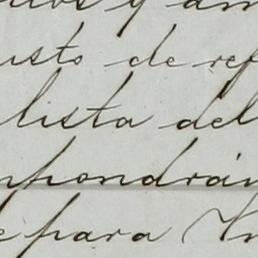 y
usto de ref
lista del
npondrán
para In